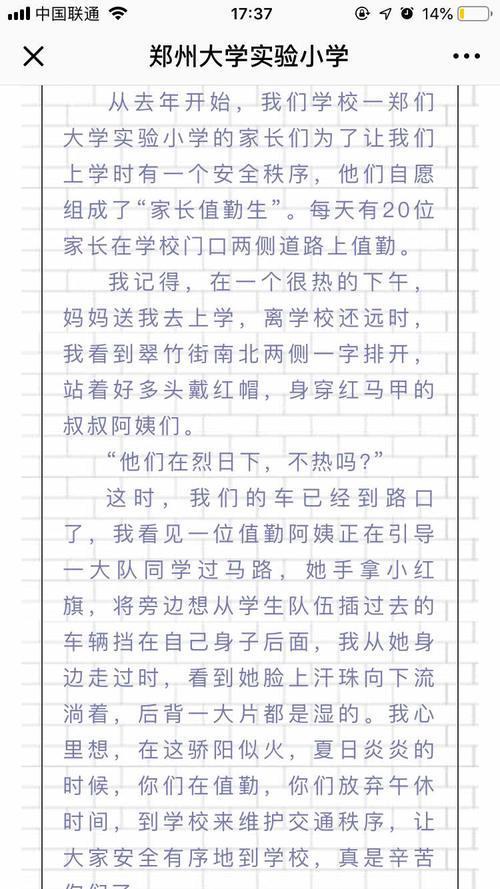 中国联通 17:37 14%
郑州大学实验小学
从去年开始，我们学校一郑们
大学实验小学的家长们为了让我们
上学时有一个安全秩序，他们自愿
组成了“家长值勤生”。每天有20位
家长在学校门口两侧道路上值勤。
我记得，在一个很热的下午，
妈妈送我去上学，离学校还远时，
我看到翠竹街南北两侧一字排开，
站着好多头戴红帽，身穿红马甲的
叔叔阿姨们。
“他们在烈日下，不热吗?”
这时，我们的车已经到路口
了，我看见一位值勤阿姨正在引导
一大队同学过马路，她手拿小红
旗，将旁边想从学生队伍插过去的
车辆挡在自己身子后面，我从她身
边走过时，看到她脸上汗珠向下流
淌着，后背一大片都是湿的。我心
里想，在这骄阳似火，夏日炎炎的
时候，你们在值勤，你们放弃午休
时间，到学校来维护交通秩序，让
大家安全有序地到学校，真是辛苦